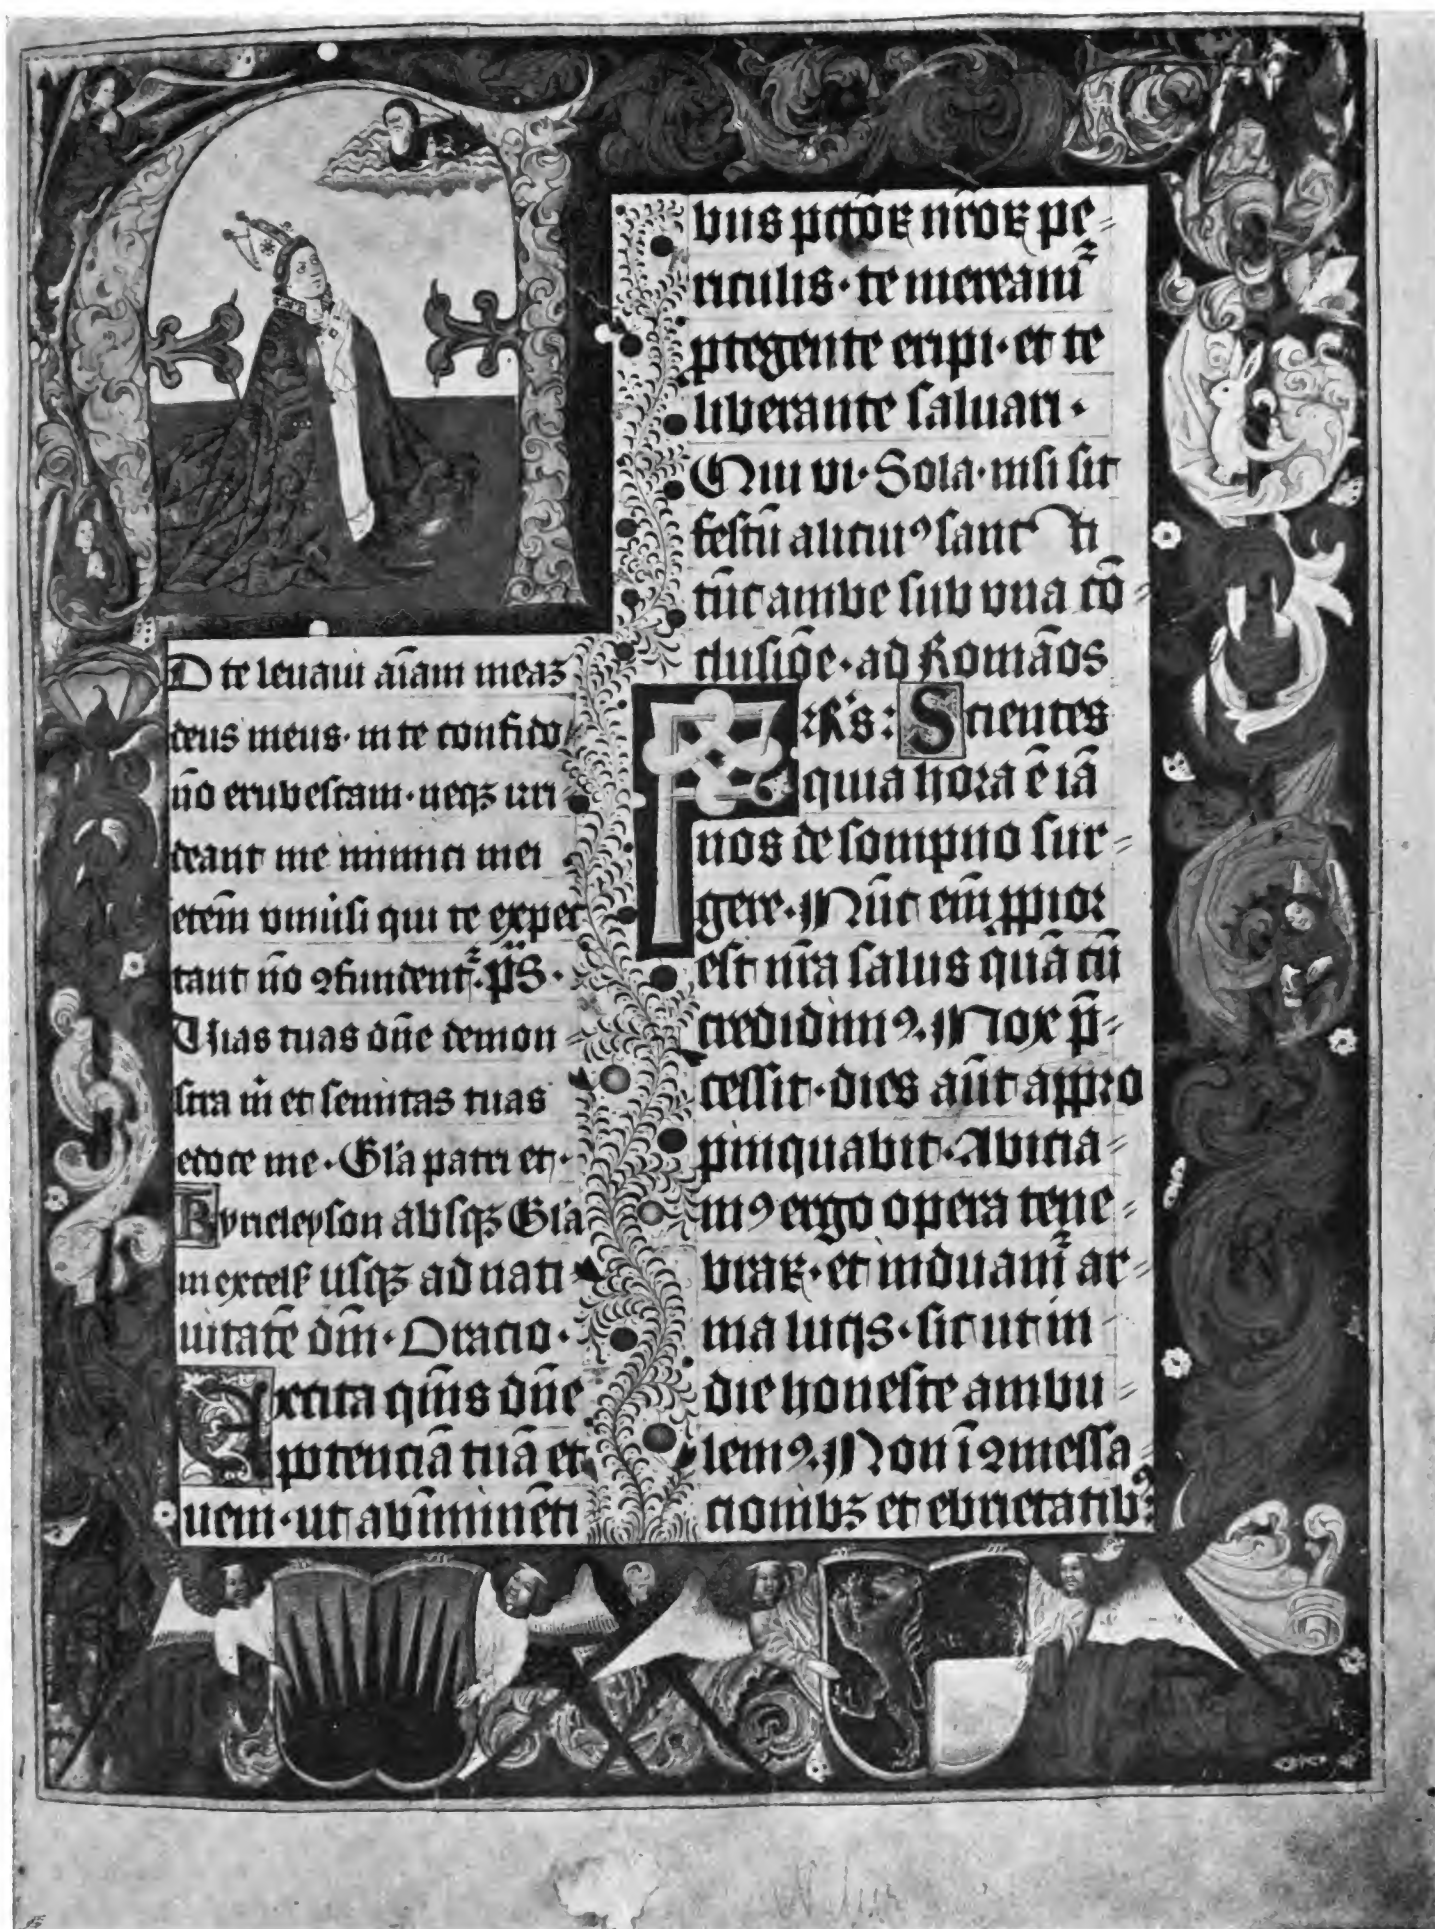 D te leuaui aīam meaʒ
deus meus · in te confido
nō erubescam · neqʒ irri
deant me inimici mei
etem̄ vniūsi qui te expec
tant nō ꝯfundentᷣ · p̄s ·
Vias tuas dn̄e demon
stra m̄ et semitas tuas
edoce me · Gl̄a patri et ·
Kyrieleyson absqʒ Gl̄a
in excels̄ usqʒ ad nati
uitatē dm̄ · Oracio ·
Excita qm̄s dn̄e
potenciā tuā et
ueni · ut ab īminēti
bus pctōꝝ nr̄oꝝ pe⸗
riculis · te mereamᷣ
ꝓtegente eripi · et te
liberante saluari ·
Qui vi · Sola · nisi sit
festū alicuiꝰ sanc ti
tūc ambe sub vna cō⸗
clusiōe · ad Romāos
F̄R̄s : Scientes
quia hora ē iā
nos de sompno sur⸗
gere · Nūc em̄ ꝓpior
est nr̄a salus quā cū
credidimꝰ · Nox p̄⸗
cessit · dies aūt appro
pinquabit · Abicia⸗
mꝰ ergo opera tene⸗
braꝝ · et induamᷣ ar⸗
ma lucis · sicut in
die honeste ambu⸗
lemꝰ · Non ī ꝯmessa⸗
cionibʒ et ebrietatibꝰ: